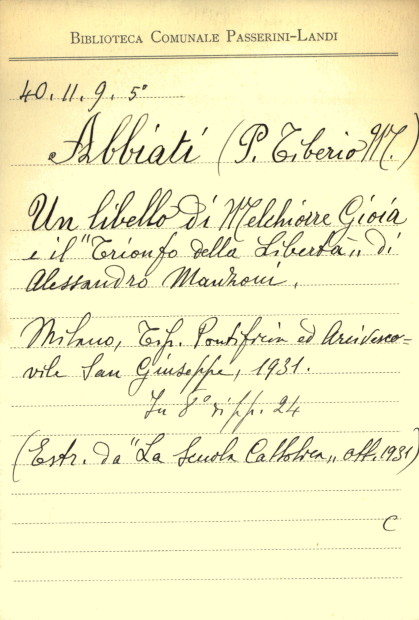 BIBLIOTECA COMUNALE PASSERINI-LANDI
40.11.9.5°
Abbiati (P. Tiberio M.)
Un libello di Melchiorre Gioia
e il "Trionfo della Libertà„ di
Alessandro Manzoni.
Milano, Tip. Pontificia ed Arcivesco=
vile San Giuseppe, 1931.
In 8° di pp. 24
(Estr. da "La Scuola Cattolica„ ott. 1931)
C